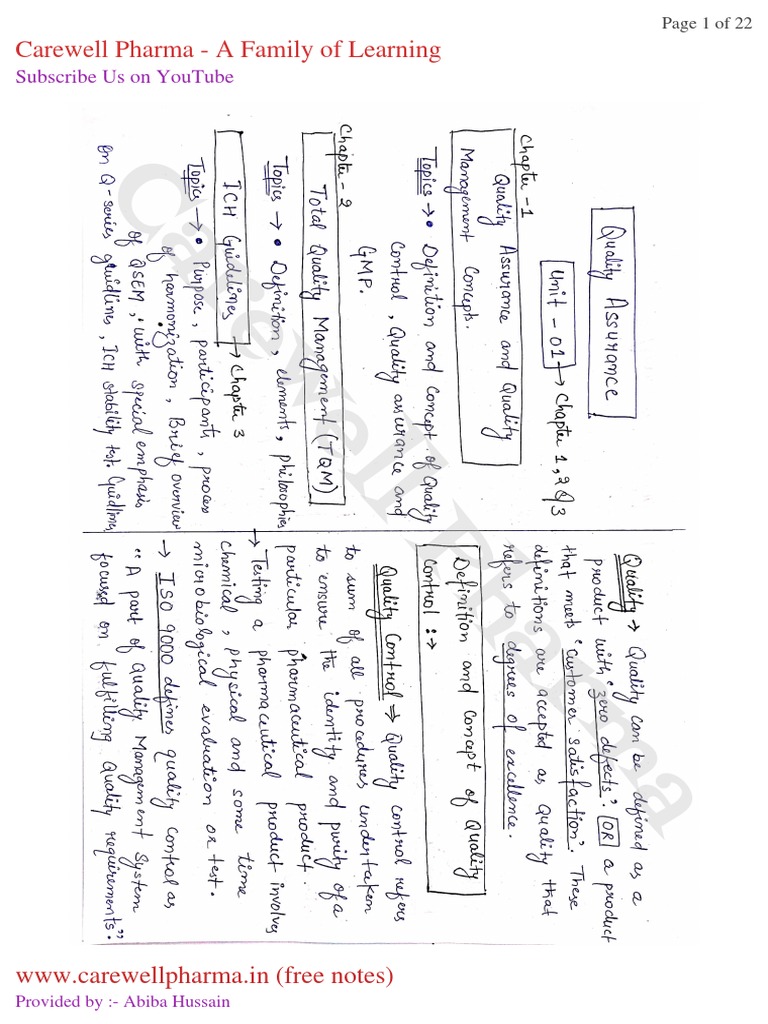 Page 1 of 22
Carewell Pharma - A Family of Learning
Subscribe Us on YouTube
Quality Assurance
Unit - 01 → Chapter 1, 2 & 3
Chapter -1
Quality Assurance and Quality
Management Concepts.
Topics → • Definition and concept of Quality
control, Quality assurance and
GMP.
Chapter - 2
Total Quality Management (TQM)
Topics → • Definition, elements, philosophies
ICH Guidelines → Chapter 3
Topics → • Purpose, participants, process
of harmonization, Brief overview
of QSEM, with special emphasis
on Q-series guidlines, ICH stability test. Guidlines
Quality → Quality can be defined as a
product with "zero defects." OR a product
that meets "customer satisfaction". These
definitions are accepted as quality that
refers to degrees of excellence.
Definition and concept of Quality
control :→
Quality Control ⇒ Quality control refers
to sum of all procedures undertaken
to ensure the identity and purity of a
particular pharmaceutical product.
→ Testing a pharmaceutical product involves
chemical, physical and some time
microbiological evaluation or test.
→ ISO 9000 defines quality control as
"A part of Quality Management System
focused on fulfilling Quality requirements."
Carewell Pharma
www.carewellpharma.in (free notes)
Provided by :- Abiba Hussain